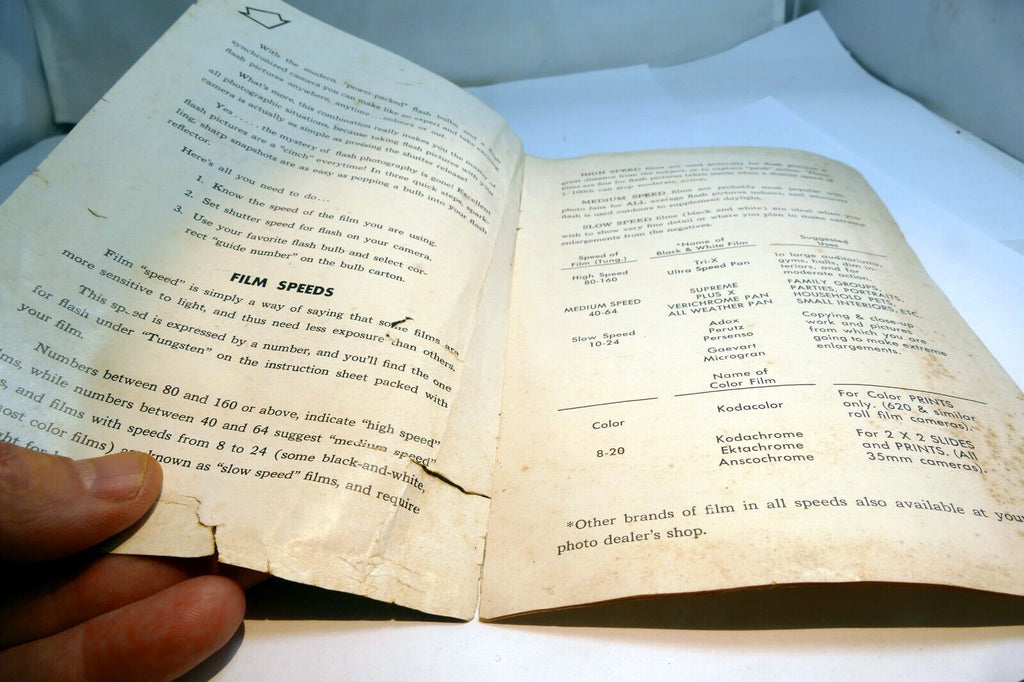 With the modern, "power-packed" flash bulbs, and a
synchronized camera you can make like an expert and take
flash pictures anywhere, anytime . . . indoors or out.
What's more, this combination really makes you the master of
all photographic situations, because taking flash pictures with your
camera is actually as simple as pressing the shutter release.
Yes . . . . . the mystery of flash photography is gone! Excellent
flash pictures are a "cinch" everytime! In three quick steps, spark-
ling, sharp snapshots are as easy as popping a bulb into your flash
reflector.
Here's all you need to do . . .
1. Know the speed of the film you are using.
2. Set shutter speed for flash on your camera.
3. Use your favorite flash bulb and select cor-
rect "guide number" on the bulb carton.
FILM SPEEDS
Film "speed" is simply a way of saying that some films are
more sensitive to light, and thus need less exposure than others.
This speed is expressed by a number, and you'll find the one
for flash under "Tungsten" on the instruction sheet packed with
your film.
Numbers between 80 and 160 or above, indicate "high speed"
films, while numbers between 40 and 64 suggest "medium speed"
and films with speeds from 8 to 24 (some black-and-white,
most color films) known as "slow speed" films, and require
HIGH SPEED films are used generally for flash pictures
great distance from the subject, or to capture "peak" action.
films are fine for flash pictures taken when a shutter
1-100th can stop moderate
MEDIUM SPEED films are probably most popular
photo fans for ALL average flash pictures indoors and
flash is used outdoors to supplement daylight.
SLOW SPEED films (black and white) are ideal when you
wish to show very fine detail or where you plan to make extreme
enlargements from the negatives.
Speed of
Film (Tung.)
*Name of
Black & White Film
Suggested
Uses
High Speed
80-160
Tri-X
Ultra Speed Pan
In large auditoriums,
gyms, halls, dim in-
teriors, and for
moderate action.
MEDIUM SPEED
40-64
SUPREME
PLUS X
VERICHROME PAN
ALL WEATHER PAN
FAMILY GROUPS,
PARTIES, PORTRAITS,
HOUSEHOLD PETS,
SMALL INTERIORS, ETC.
Slow Speed
10-24
Adox
Perutz
Persenso
Gaevart
Microgran
Copying & close-up
work and pictures
from which you are
going to make extreme
enlargements.
Name of
Color Film
Color
8-20
Kodacolor
For Color PRINTS
only. (620 & similar
roll film cameras).
Kodachrome
Ektachrome
Anscochrome
For 2 X 2 SLIDES
and PRINTS. (All
35mm cameras).
*Other brands of film in all speeds also available at your
photo dealer's shop.